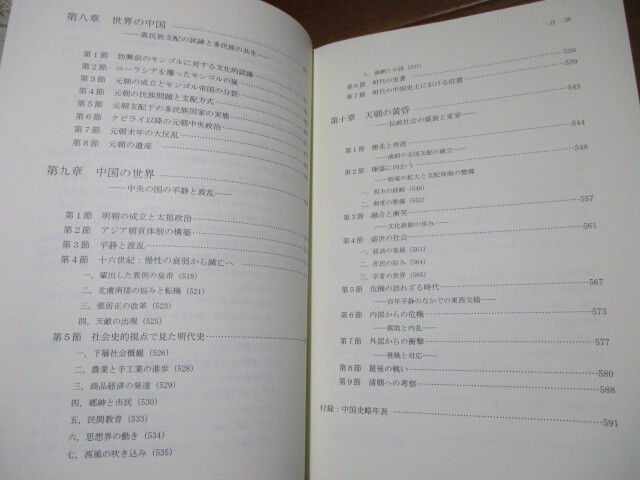 第八章　世界の中国
――異民族支配の試練と多民族の共生――
第1節　勃興前のモンゴルに対する文化的認識
第2節　ユーラシアを覆ったモンゴルの嵐
第3節　元朝の成立とモンゴル帝国の分裂
第4節　元朝の民族問題と支配方式
第5節　元朝支配下の多民族国家の実態
第6節　クビライ以降の元朝中央政治
第7節　元朝末年の大反乱
第8節　元朝の遺産
第九章　中国の世界
――中央の国の平静と波乱――
第1節　明朝の成立と太祖政治
第2節　アジア朝貢体制の構築
第3節　平静と波乱
第4節　十六世紀：慢性の衰弱から滅亡へ
一、輩出した異例の皇帝（518）
二、北虜南倭の悩みと転機（521）
三、張居正の改革（523）
四、天敵の出現（525）
第5節　社会史的視点で見た明代史
一、下層社会概観（526）
二、農業と手工業の進歩（528）
三、商品経済の発達（529）
四、郷紳と市民（530）
五、民間教育（533）
六、思想界の動き（534）
七、西風の吹き込み（535）
目　次
八、戯劇と小説（537）
第6節　明代の史書　538
第7節　明代の中国史上における位置　539
第十章　天朝の黄昏　543
――伝統社会の盛衰と変容――
第1節　　544
第2節　極盛に向かう　548
――領域の拡大と支配体制の整備
一、四方の経略（548）
二、制度の整備（552）
第3節　融合と衝突　557
――文化政制の歩み――
第4節　盛世の社会　561
一、経済の発展（561）
二、庶民の好み（564）
三、学者の世界（565）
第5節　危機の訪れざる時代　567
――百年平静のなかでの東西交錯――
第6節　内部からの危機　573
――腐敗と内乱――
第7節　外部からの衝撃　577
――挑戦と対応――
第8節　最後の戦い　580
第9節　清朝への考察　588
付録：中国史略年表　591